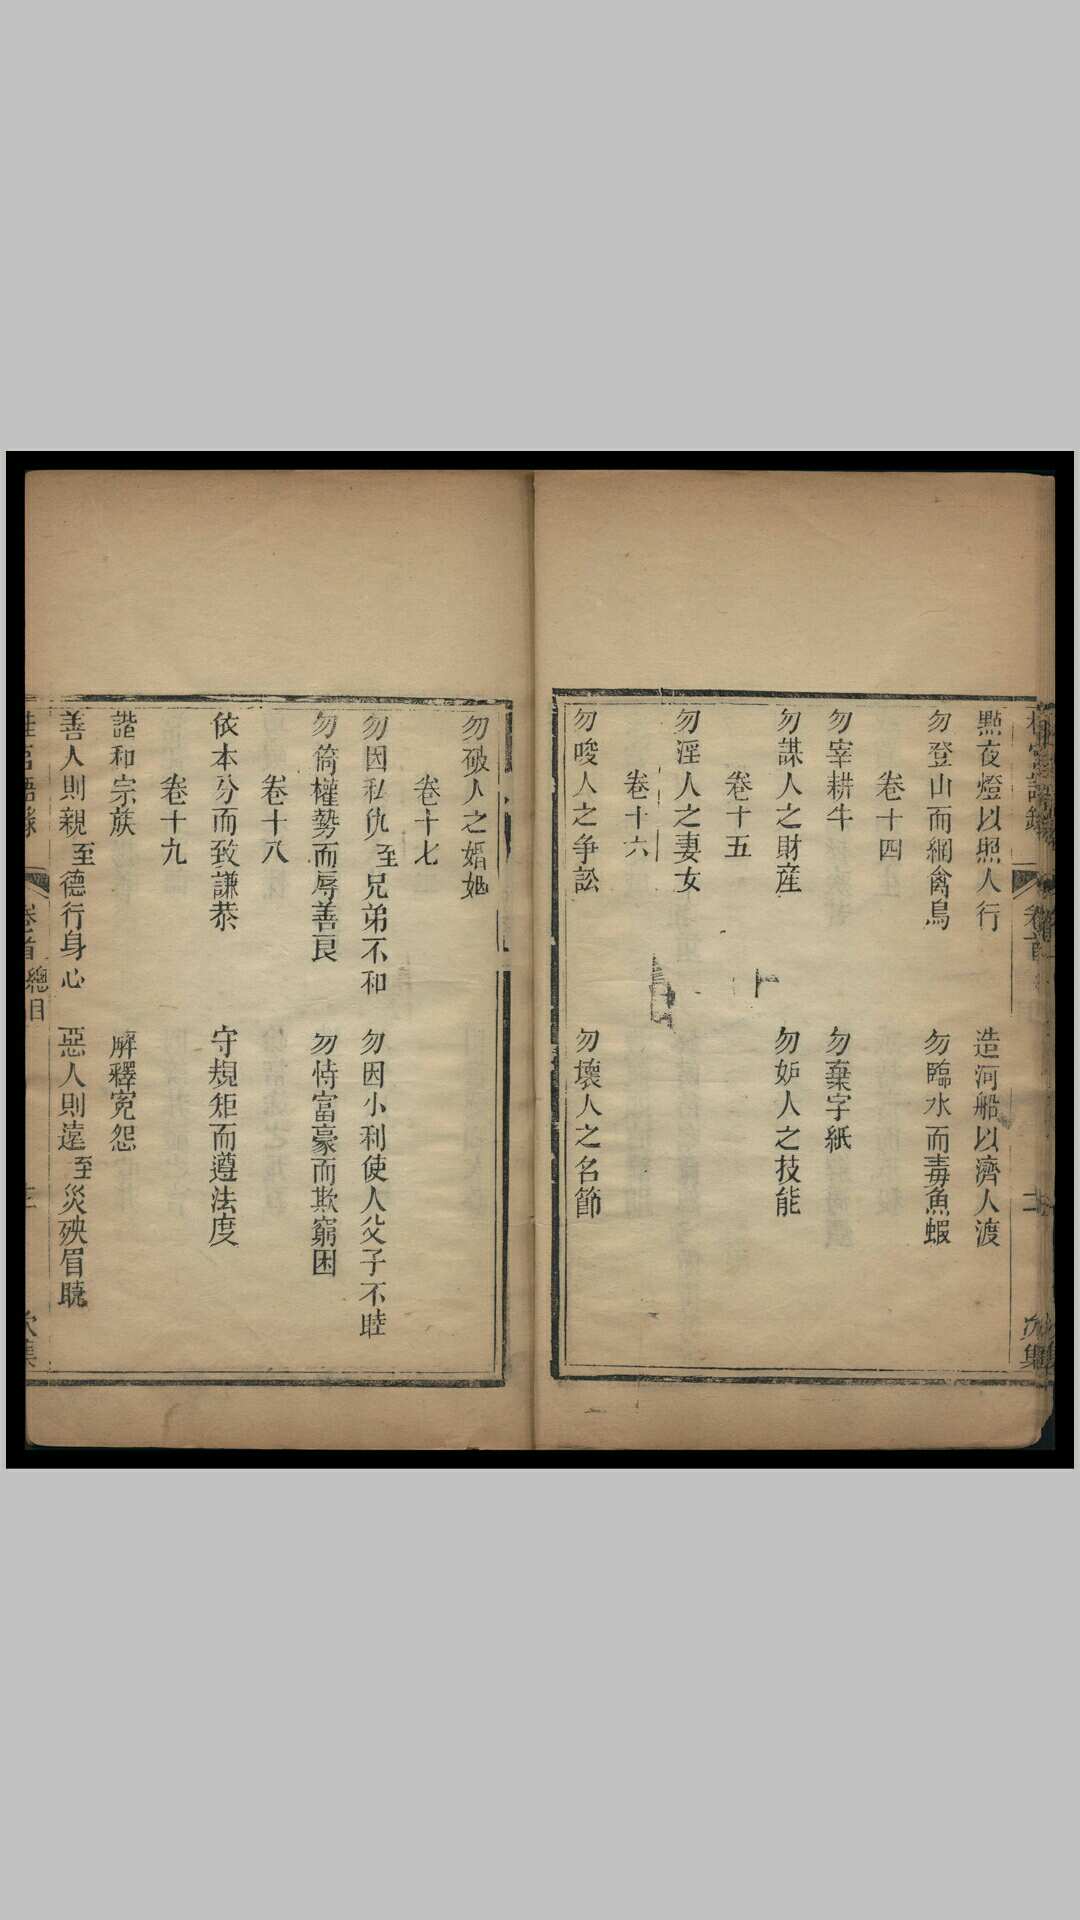 點夜燈以照人行　造河船以濟人渡
勿登山而網禽鳥　勿臨水而毒魚蝦
卷十四
勿宰耕牛　勿棄字紙
勿謀人之財産　勿妒人之技能
卷十五
勿淫人之妻女
卷十六
勿唆人之争訟　勿壞人之名節
勿破人之婚姻
卷十七
勿因私仇至兄弟不和　勿因小利使人父子不睦
勿倚權勢而辱善良　勿恃富豪而欺窮困
卷十八
依本分而致謙恭　守規矩而遵法度
卷十九
諧和宗族　解釋寃怨
善人則親至德行身心　惡人則遠至災殃眉睫
卷首 總目